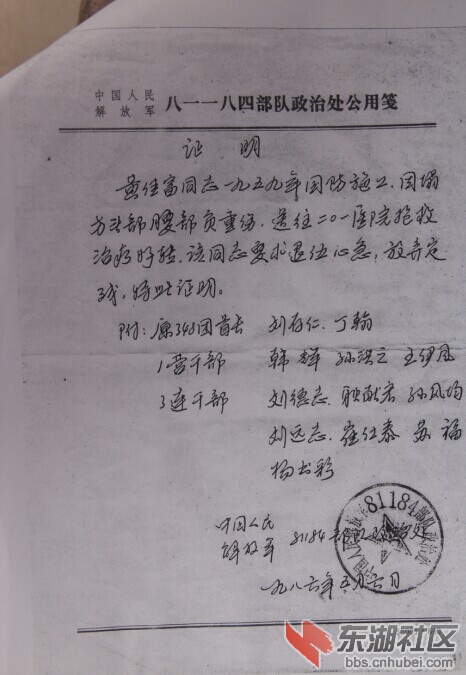 中国人民
解放军 八一一八四部队政治处公用笺
证 明
黄佳富同志一九五九年国防施工,因塌
方头部腰部负重伤,送往二〇一医院抢救
治疗好转,该同志要求退伍心急,放弃定
残,特此证明。
附:原343团首长 刘存仁、丁翰
1营干部 韩辉 孙洪立 王伊凤
3连干部 刘德志、耿献君 孙凤均
刘远志、崔仕泰 苏福
杨书彩
中国人民
解放军 81184部队政治处
一九八六年五月六日
81184部队
东湖社区
bbs.cnhubei.com